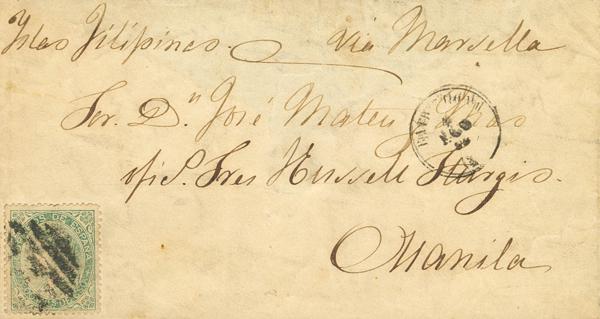 Yslas Filipinas. via Marsella
Sor. D.n José Mateu
Sres Russell Sturgis.
Manila
AGO
DE ESPAÑA